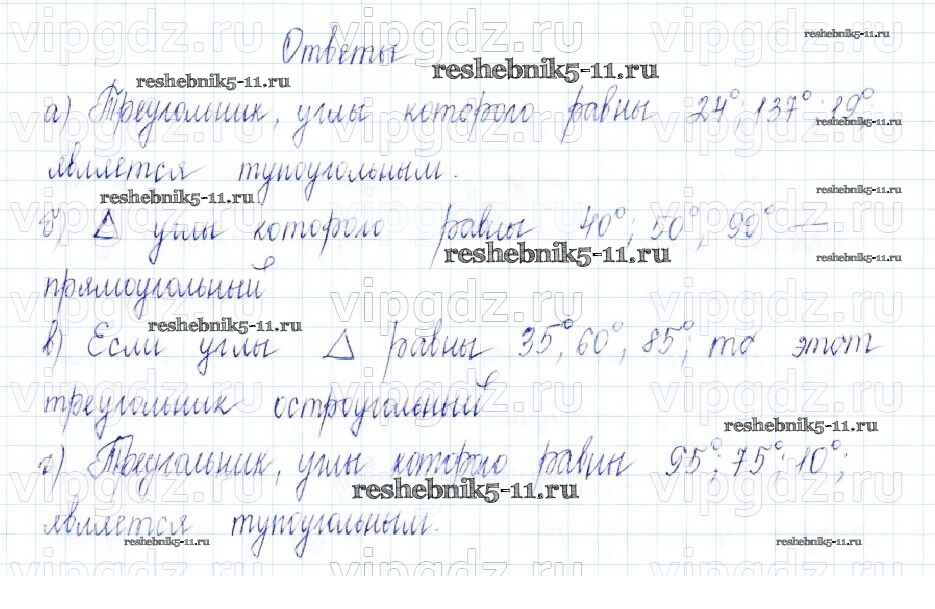 Ответы
а) Треугольник, углы которого равны 24°; 137°; 19°,
является тупоугольным.
б) △ углы которого равны 40°; 50°; 90° —
прямоугольный
в) Если углы △ равны 35°; 60°; 85°; то этот
треугольник остроугольный
г) Треугольник, углы которого равны 95°; 75°; 10°;
является тупоугольным.
vipgdz.ru
reshebnik5-11.ru